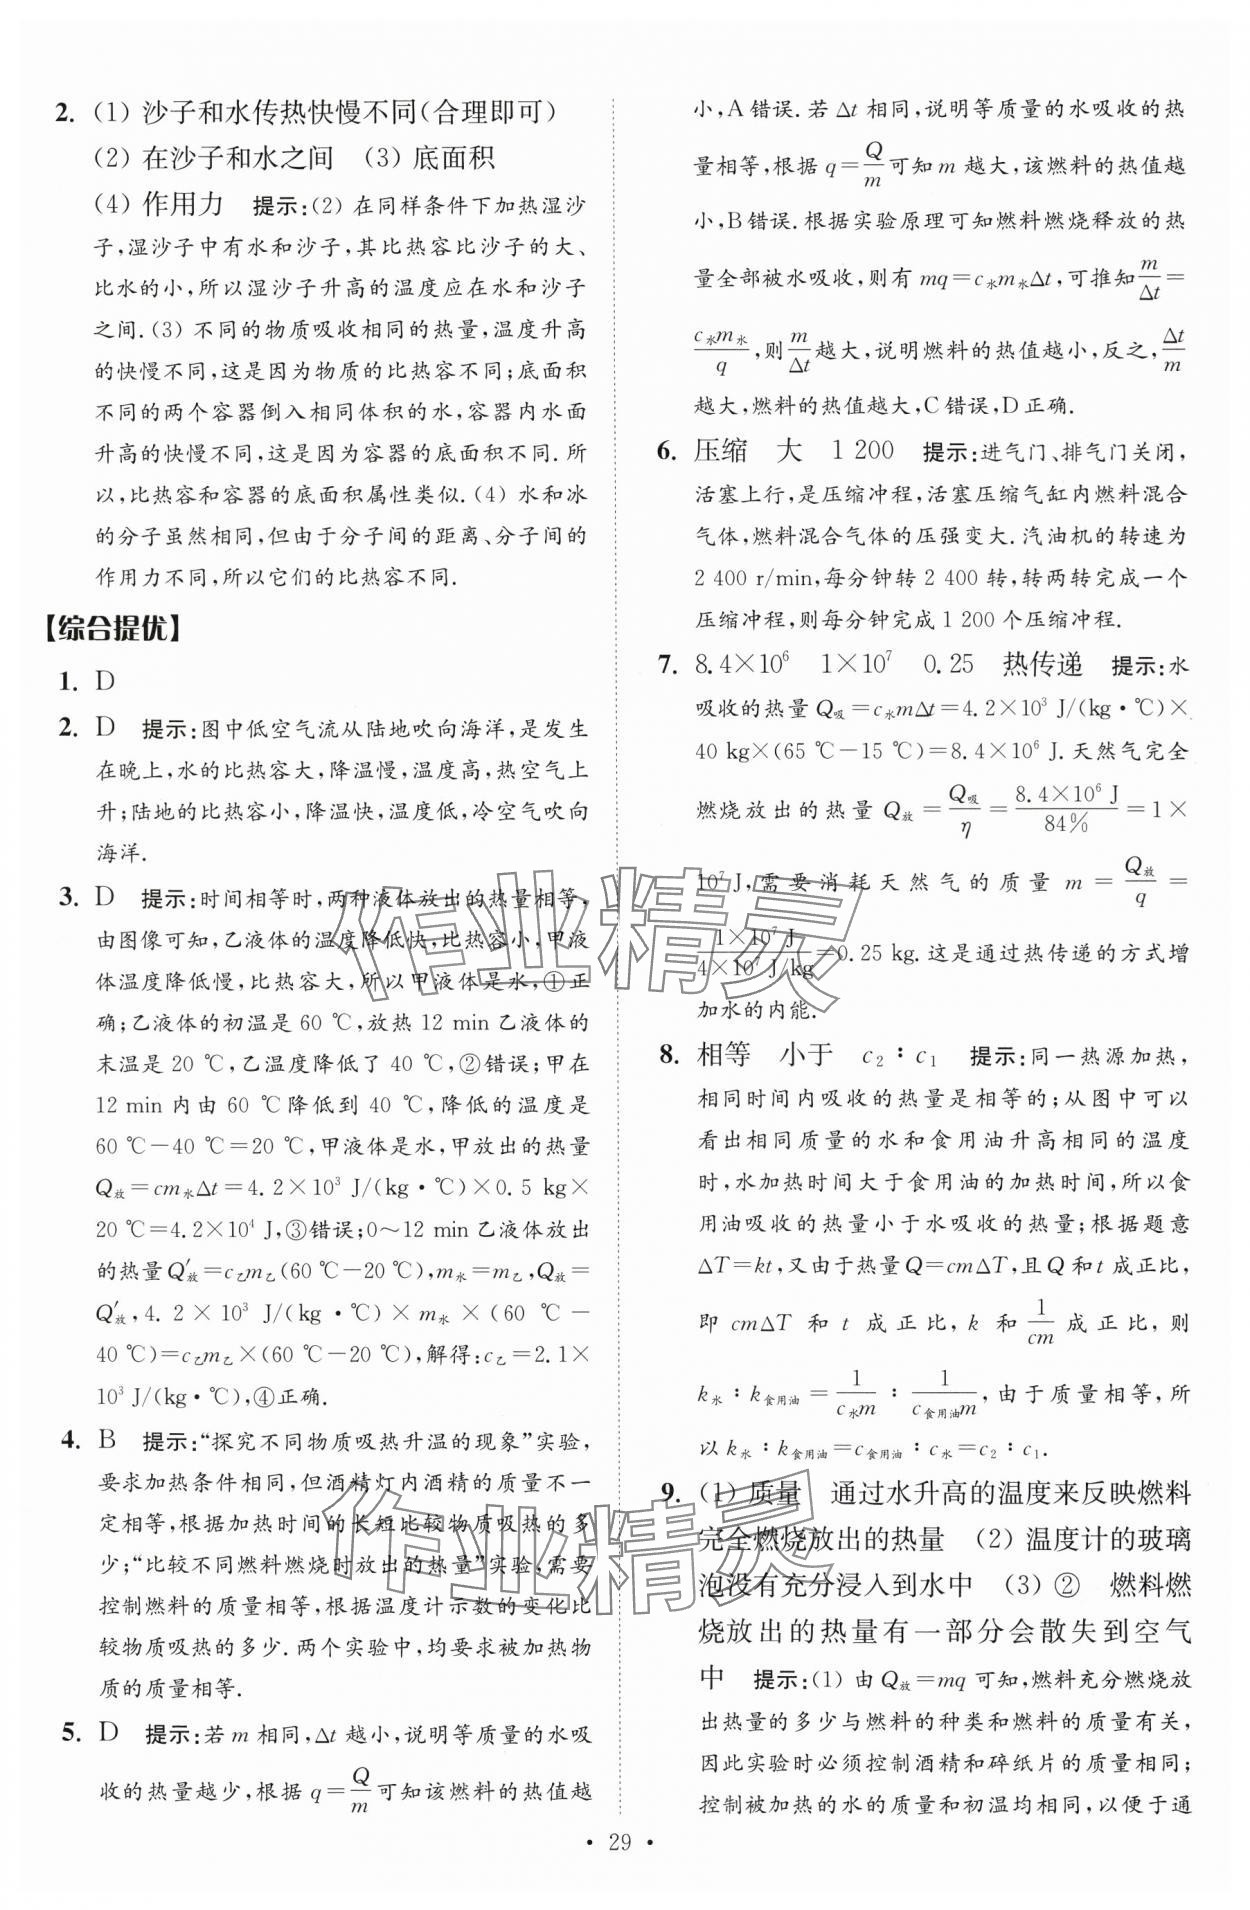 2. (1) 沙子和水传热快慢不同(合理即可)
(2) 在沙子和水之间 (3) 底面积
(4) 作用力 提示:(2) 在同样条件下加热湿沙
子,湿沙子中有水和沙子,其比热容比沙子的大、
比水的小,所以湿沙子升高的温度应在水和沙子
之间.(3) 不同的物质吸收相同的热量,温度升高
的快慢不同,这是因为物质的比热容不同;底面积
不同的两个容器倒入相同体积的水,容器内水面
升高的快慢不同,这是因为容器的底面积不同.所
以,比热容和容器的底面积属性类似.(4) 水和冰
的分子虽然相同,但由于分子间的距离、分子间的
作用力不同,所以它们的比热容不同.
【综合提优】
1. D
2. D 提示:图中低空气流从陆地吹向海洋,是发生
在晚上,水的比热容大,降温慢,温度高,热空气上
升;陆地的比热容小,降温快,温度低,冷空气吹向
海洋.
3. D 提示:时间相等时,两种液体放出的热量相等,
由图像可知,乙液体的温度降低快,比热容小,甲液
体温度降低慢,比热容大,所以甲液体是水,①正
确;乙液体的初温是 60 ℃,放热 12 min 乙液体的
末温是 20 ℃,乙温度降低了 40 ℃,②错误;甲在
12 min 内由 60 ℃降低到 40 ℃,降低的温度是
60 ℃-40 ℃=20 ℃,甲液体是水,甲放出的热量
Q放=cm水Δt=4.2×10³ J/(kg·℃)×0.5 kg×
20 ℃=4.2×10⁴ J,③错误;0～12 min 乙液体放出
的热量Q′放=c乙m乙(60 ℃-20 ℃),m水=m乙,Q放=
Q′放,4.2×10³ J/(kg·℃)×m水×(60 ℃-
40 ℃)=c乙m乙×(60 ℃-20 ℃),解得:c乙=2.1×
10³ J/(kg·℃),④正确.
4. B 提示:“探究不同物质吸热升温的现象”实验,
要求加热条件相同,但酒精灯内酒精的质量不一
定相等,根据加热时间的长短比较物质吸热的多
少;“比较不同燃料燃烧时放出的热量”实验,需要
控制燃料的质量相等,根据温度计示数的变化比
较物质吸热的多少.两个实验中,均要求被加热物
质的质量相等.
5. D 提示:若 m 相同,Δt 越小,说明等质量的水吸
收的热量越少,根据 q=Q/m 可知该燃料的热值越
小,A 错误.若 Δt 相同,说明等质量的水吸收的热
量相等,根据 q=Q/m 可知 m 越大,该燃料的热值越
小,B 错误.根据实验原理可知燃料燃烧释放的热
量全部被水吸收,则有 mq=c水m水Δt,可推知 m/Δt=
c水m水/q,则 m/Δt 越大,说明燃料的热值越小,反之,Δt/m
越大,燃料的热值越大,C 错误,D 正确.
6. 压缩 大 1 200 提示:进气门、排气门关闭,
活塞上行,是压缩冲程,活塞压缩气缸内燃料混合
气体,燃料混合气体的压强变大.汽油机的转速为
2 400 r/min,每分钟转 2 400 转,转两转完成一个
压缩冲程,则每分钟完成 1 200 个压缩冲程.
7. 8.4×10⁶ 1×10⁷ 0.25 热传递 提示:水
吸收的热量 Q吸=c水mΔt=4.2×10³ J/(kg·℃)×
40 kg×(65 ℃-15 ℃)=8.4×10⁶ J.天然气完全
燃烧放出的热量 Q放=Q吸/η=8.4×10⁶ J/84%=1×
10⁷ J,需要消耗天然气的质量 m=Q放/q=
1×10⁷ J/4×10⁷ J/kg=0.25 kg.这是通过热传递的方式增
加水的内能.
8. 相等 小于 c₂∶c₁ 提示:同一热源加热,
相同时间内吸收的热量是相等的;从图中可以
看出相同质量的水和食用油升高相同的温度
时,水加热时间大于食用油的加热时间,所以食
用油吸收的热量小于水吸收的热量;根据题意
ΔT=kt,又由于热量Q=cmΔT,且 Q 和 t 成正比,
即 cmΔT 和 t 成正比,k 和 1/cm 成正比,则
k水∶k食用油=1/c水m∶1/c食用油m,由于质量相等,所
以 k水∶k食用油=c食用油∶c水=c₂∶c₁.
9. (1) 质量 通过水升高的温度来反映燃料
完全燃烧放出的热量 (2) 温度计的玻璃
泡没有充分浸入到水中 (3) ② 燃料燃
烧放出的热量有一部分会散失到空气
中 提示:(1) 由 Q放=mq 可知,燃料充分燃烧放
出热量的多少与燃料的种类和燃料的质量有关,
因此实验时必须控制酒精和碎纸片的质量相同;
控制被加热的水的质量和初温均相同,以便于通
作业精灵
作业精灵
· 29 ·